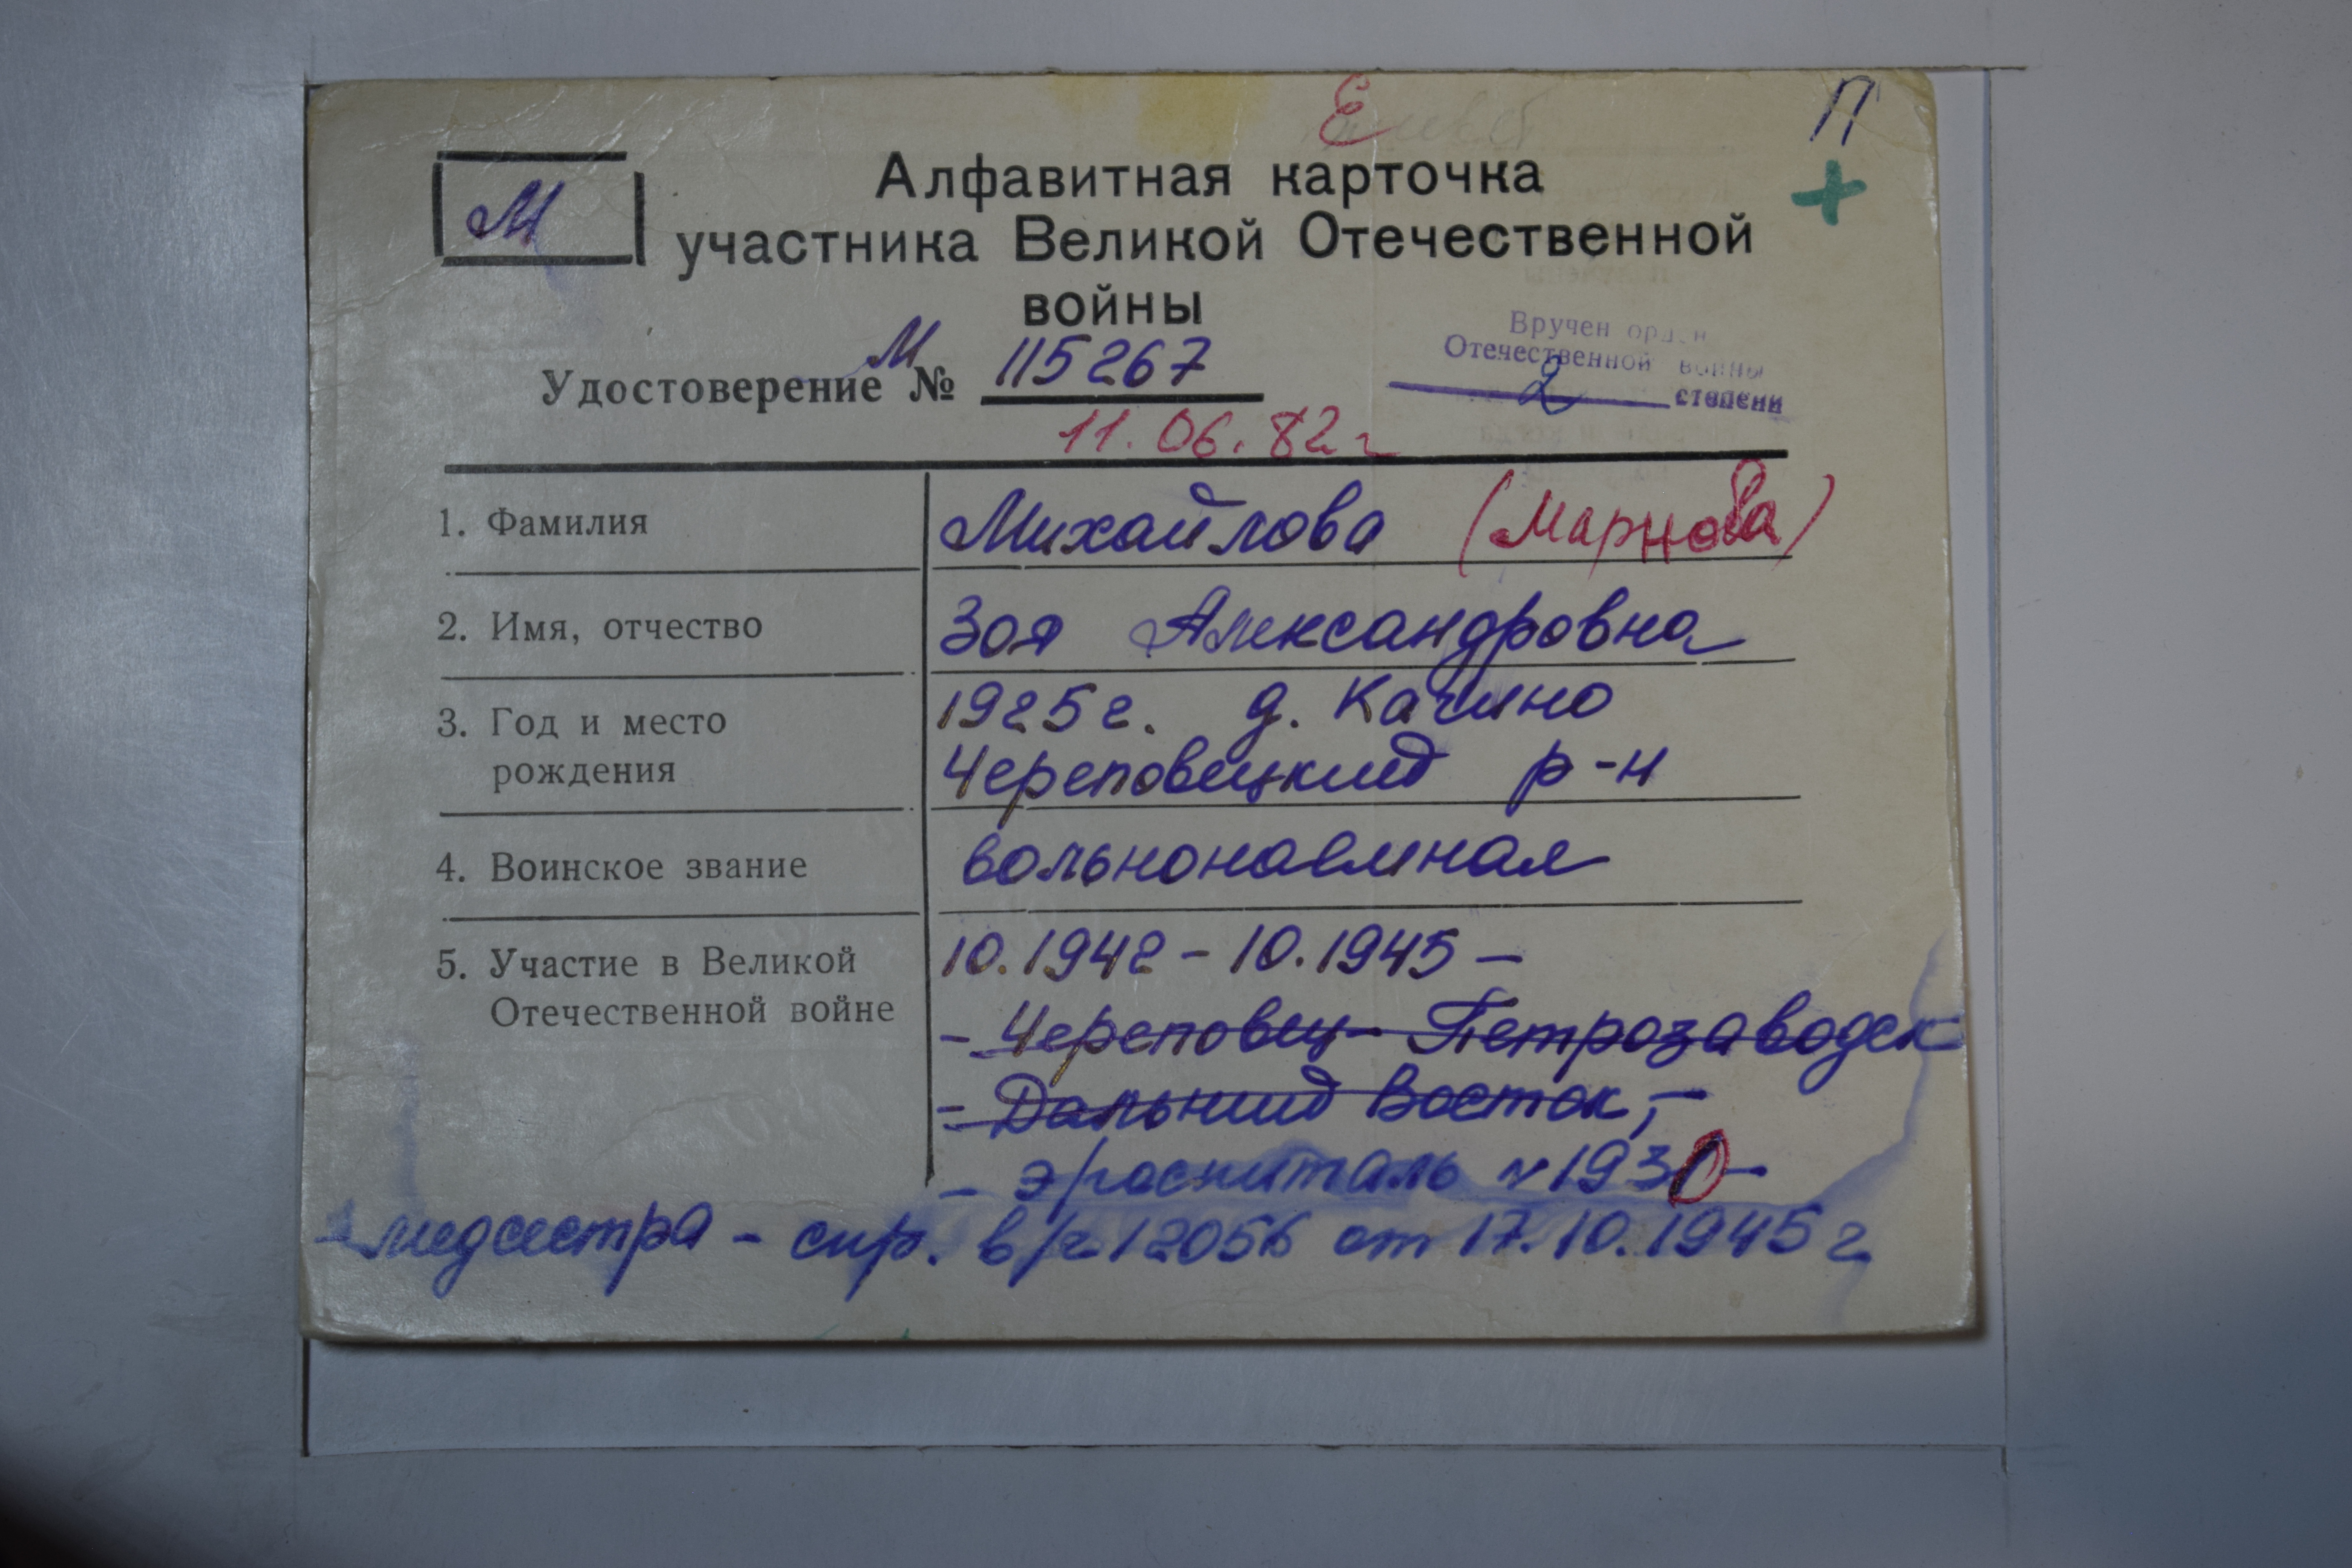 Е
П
+
М
Алфавитная карточка
участника Великой Отечественной
войны
Удостоверение М № 115267
11.06.82 г
Вручен орден
Отечественной войны
2 степени
1. Фамилия Михайлова (Марнова)
2. Имя, отчество Зоя Александровна
3. Год и место 1925 г. д. Качино
рождения Череповецкий р-н
4. Воинское звание вольнонаемная
5. Участие в Великой 10.1942 - 10.1945 -
Отечественной войне - Череповец - Петрозаводск
- Дальний Восток, -
- э/госпиталь № 1930 -
медсестра - спр. в/ч 12056 от 17.10.1945 г